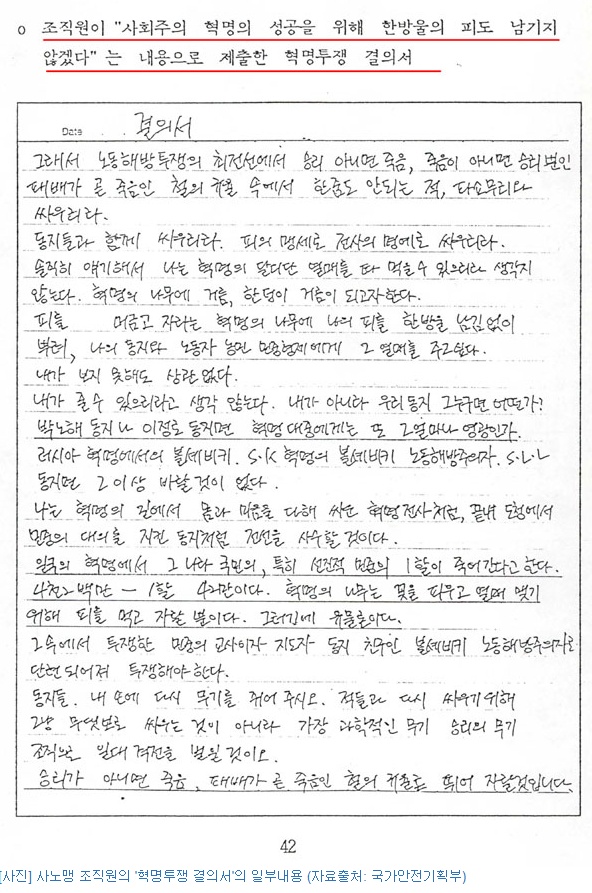 o 조직원이 "사회주의 혁명의 성공을 위해 한방울의 피도 남기지
않겠다" 는 내용으로 제출한 혁명투쟁 결의서
Date 결의서
그래서 노동해방투쟁의 최전선에서 승리 아니면 죽음, 죽음이 아니면 승리뿐인
패배가 곧 죽음인 철의 규율 속에서 한줌도 안되는 적, 타소무리와
싸우리라.
동지들과 함께 싸우리라. 피의 맹세로 전사의 명예로 싸우리라.
솔직히 얘기해서 나는 혁명의 달디단 열매를 따 먹을수 있으리라 생각지
않는다. 혁명의 나무에 거름, 한덩이 거름이 되고자 한다.
피를 머금고 자라는 혁명의 나무에 나의 피를 한방울 남김없이
뿌려, 나의 동지와 노동자 농민 민중형제에게 그 열매를 주고싶다.
내가 보지 못해도 상관 없다.
내가 줄수 있으리라고 생각 않는다. 내가 아니라 우리동지 그누구면 어떤가?
박노해 동지나 이정로 동지면 혁명 대중에게는 또 그얼마나 영광인가.
러시아 혁명에서의 볼셰비키. S.K 혁명의 볼셰비키 노동해방주의자. S.L.L
동지면 그이상 바랄것이 없다.
나는 혁명의 길에서 몸과 마음을 다해 싸운 혁명전사처럼, 끝내 도청에서
민중의 대의를 지킨 동지처럼 전선을 사수할 것이다.
일국의 혁명에서 그 나라 국민의, 특히 선진적 민중의 1할이 죽어간다고 한다.
사천2백만 - 1할 42만이다. 혁명의 나무는 꽃을 피우고 열매 맺기
위해 피를 먹고 자랄 뿐이다. 그러기에 유물론이다.
그속에서 투쟁한 민중의 교사이자 지도자 동지 친구인 볼셰비키 노동해방주의자로
단련되어져 투쟁해야한다.
동지들. 내 손에 다시 무기를 쥐어 주시요. 적들과 다시 싸우기위해
그냥 무엇보로 싸우는 것이 아니라 가장 과학적인 무기 승리의 무기
조직으로 일대 격전을 벌일 것이오.
승리가 아니면 죽음, 패배가 곧 죽음인 철의 규율로 뛰어 자랄것입니다.
42
[사진] 사노맹 조직원의 '혁명투쟁 결의서'의 일부내용 (자료출처: 국가안전기획부)